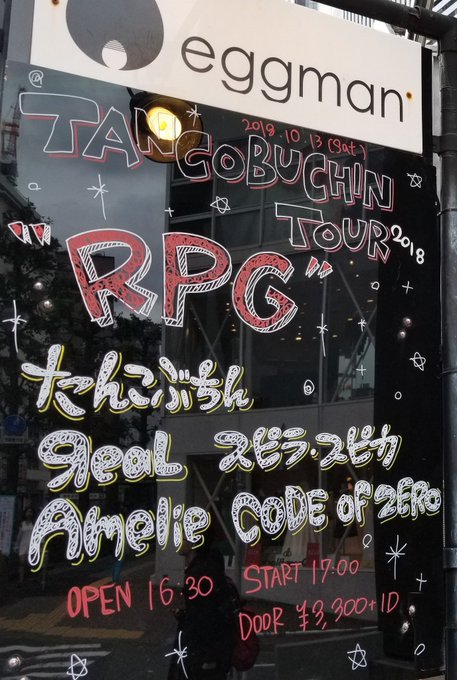 eggman
2018.10.13 (Sat)
@
TANCOBUCHIN
TOUR 2018
"RPG"
たんこぶちん
ЯeaL スピラ・スピカ
Amelie CODE OF ZERO
OPEN 16:30 START 17:00
DOOR ¥3,300+1D